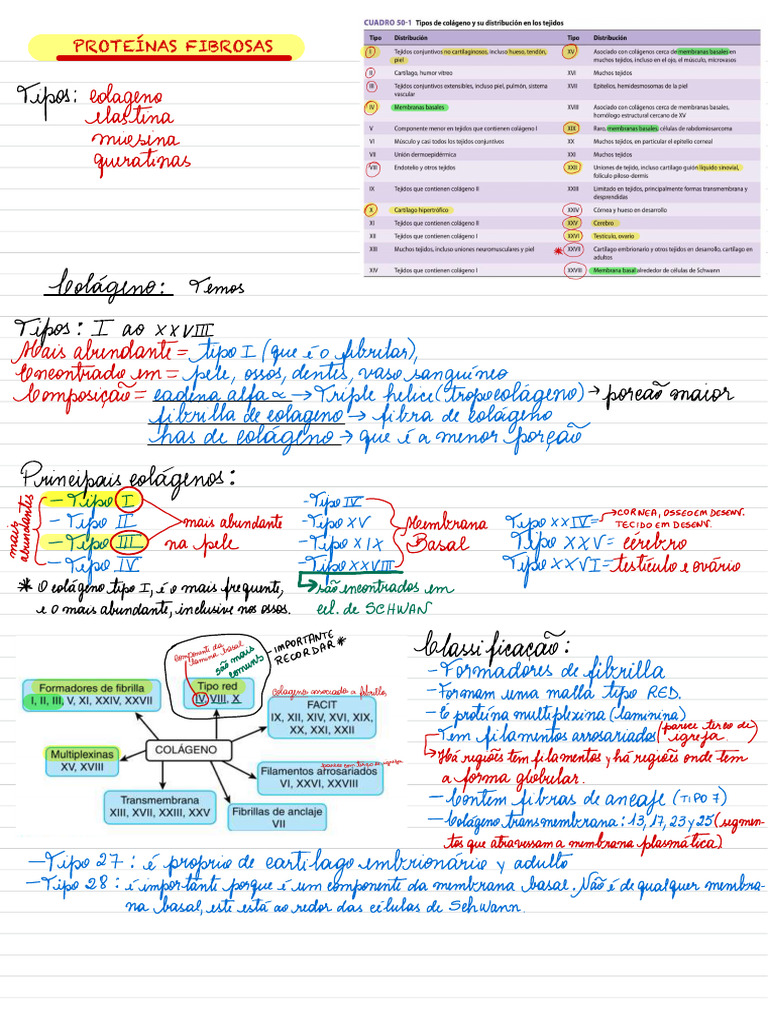 PROTEÍNAS FIBROSAS
Tipos: colageno
elastina
miosina
queratinas
CUADRO 50-1 Tipos de colágeno y su distribución en los tejidos
Tipo Distribución Tipo Distribución
I Tejidos conjuntivos no cartilaginosos, incluso hueso, tendón, piel
XV Asociado con colágenos cerca de membranas basales en muchos tejidos, incluso en el ojo, el músculo, microvasos
II Cartílago, humor vítreo
XVI Muchos tejidos
III Tejidos conjuntivos extensibles, incluso piel, pulmón, sistema vascular
XVII Epitelios, hemidesmosomas de la piel
IV Membranas basales
XVIII Asociado con colágenos cerca de membranas basales, homólogo estructural cercano de XV
V Componente menor en tejidos que contienen colágeno I
XIX Raro, membranas basales, células de rabdomiosarcoma
VI Músculo y casi todos los tejidos conjuntivos
XX Muchos tejidos, en particular el epitelio corneal
VII Unión dermoepidérmica
XXI Muchos tejidos
VIII Endotelio y otros tejidos
XXII Uniones de tejido, incluso cartílago guión líquido sinovial, folículo piloso-dermis
IX Tejidos que contienen colágeno II
XXIII Limitado en tejidos, principalmente formas transmembrana y desprendidas
X Cartílago hipertrófico
XXIV Córnea y hueso en desarrollo
XI Tejidos que contienen colágeno II
XXV Cerebro
XII Tejidos que contienen colágeno I
XXVI Testículo, ovario
XIII Muchos tejidos, incluso uniones neuromusculares y piel
* XXVII Cartílago embrionario y otros tejidos en desarrollo, cartílago en adultos
XIV Tejidos que contienen colágeno I
XXVIII Membrana basal alrededor de células de Schwann
Colágeno: Temos
Tipos: I ao XXVIII
Mais abundante = tipo I (que é o fibrilar),
Encontrado em = pele, ossos, dentes, vaso sanguíneo
Composição = cadina alfa α → Triple helice (tropocolágeno) → porção maior
fibrilla de colageno → fibra de colágeno
has de colágeno → que é a menor porção
Principais colágenos:
mais abundantes
- Tipo I
- Tipo II
- Tipo III
- Tipo IV
mais abundante
na pele
- Tipo IV
- Tipo XV
- Tipo XIX
- Tipo XXVIII
Membrana
Basal
são encontrados em
cel. de SCHWAN
Tipo XXIV = → CORNEA, OSSEO EM DESENV.
TECIDO EM DESENV.
Tipo XXV = cérebro
Tipo XXVI = testículo e ovário
* O colágeno tipo I, é o mais frequente,
e o mais abundante, inclusive nos ossos.
componente da
lamina basal
são mais
comuns
- IMPORTANTE
RECORDAR *
Formadores de fibrilla
I, II, III, V, XI, XXIV, XXVII
Tipo red
IV, VIII, X
Colageno associado a fibrillas
FACIT
IX, XII, XIV, XVI, XIX,
XX, XXI, XXII
Multiplexinas
XV, XVIII
COLÁGENO
parece com terço de igreja
Filamentos arrosariados
VI, XXVI, XXVIII
Transmembrana
XIII, XVII, XXIII, XXV
Fibrillas de anclaje
VII
Classificação:
- Formadores de fibrilla
- Formam uma malla tipo RED.
- E proteína multiplexina (laminina)
- Tem filamentos arrosariados (parece terço de igreja
→ Há regiões tem filamentos y há regiões onde tem
a forma globular.
- Contem fibras de ancaje (TIPO 7)
- Colágeno transmembrana: 13, 17, 23 y 25 (segmen-
tos que atravessam a membrana plasmática)
- Tipo 27: é proprio de cartilago embrionário y adulto
- Tipo 28: é importante porque é um componente da membrana basal. Não é de qualquer membra-
na basal, este está ao redor das células de Schwann.